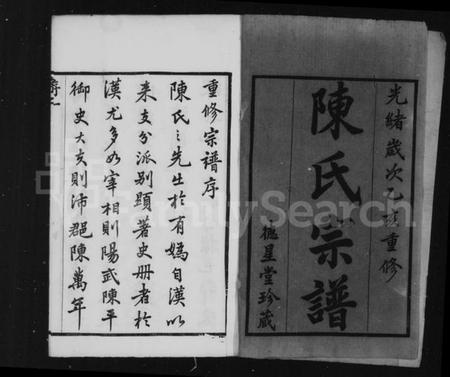 光緒歲次乙亥重修
陳氏宗譜
星堂珍藏
重修宗譜序
陳氏之先生於有媯自漢以
來支分派別顯著史冊者於
漢尤多如宰相則陽武陳平
御史大夫則沛郡陳萬年
FamilySearch